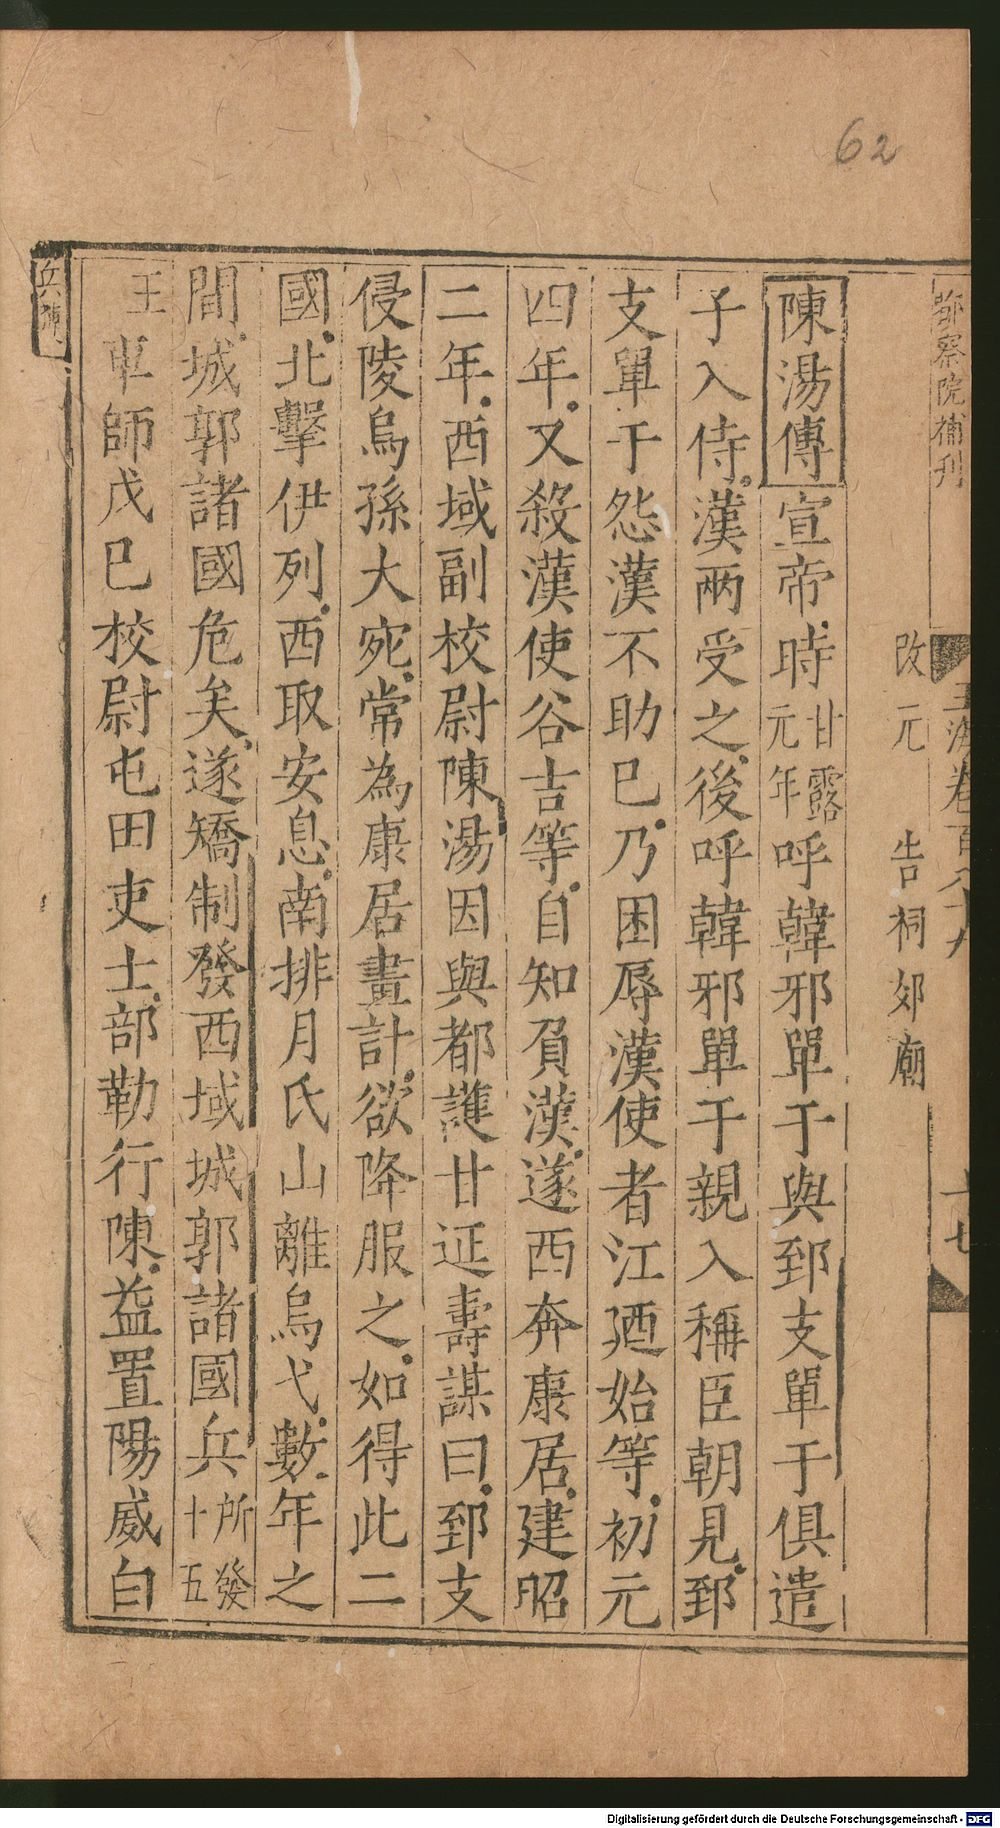 62
都察院補刊
玉海卷百八十九
十七
改元 告祠郊廟
陳湯傳宣帝時甘露元年呼韓邪單于與郅支單于俱遣
子入侍漢兩受之後呼韓邪單于親入稱臣朝見郅
支單于怨漢不助已乃困辱漢使者江迺始等初元
四年又殺漢使谷吉等自知負漢遂西奔康居建昭
二年西域副校尉陳湯因與都護甘延壽謀曰郅支
侵陵烏孫大宛常為康居畫計欲降服之如得此二
國北擊伊列西取安息南排月氏山離烏弋數年之
間城郭諸國危矣遂矯制發西域城郭諸國兵所發十五
王車師戊巳校尉屯田吏士部勒行陳益置陽威白
兵陳
Digitalisierung gefördert durch die Deutsche Forschungsgemeinschaft - DFG